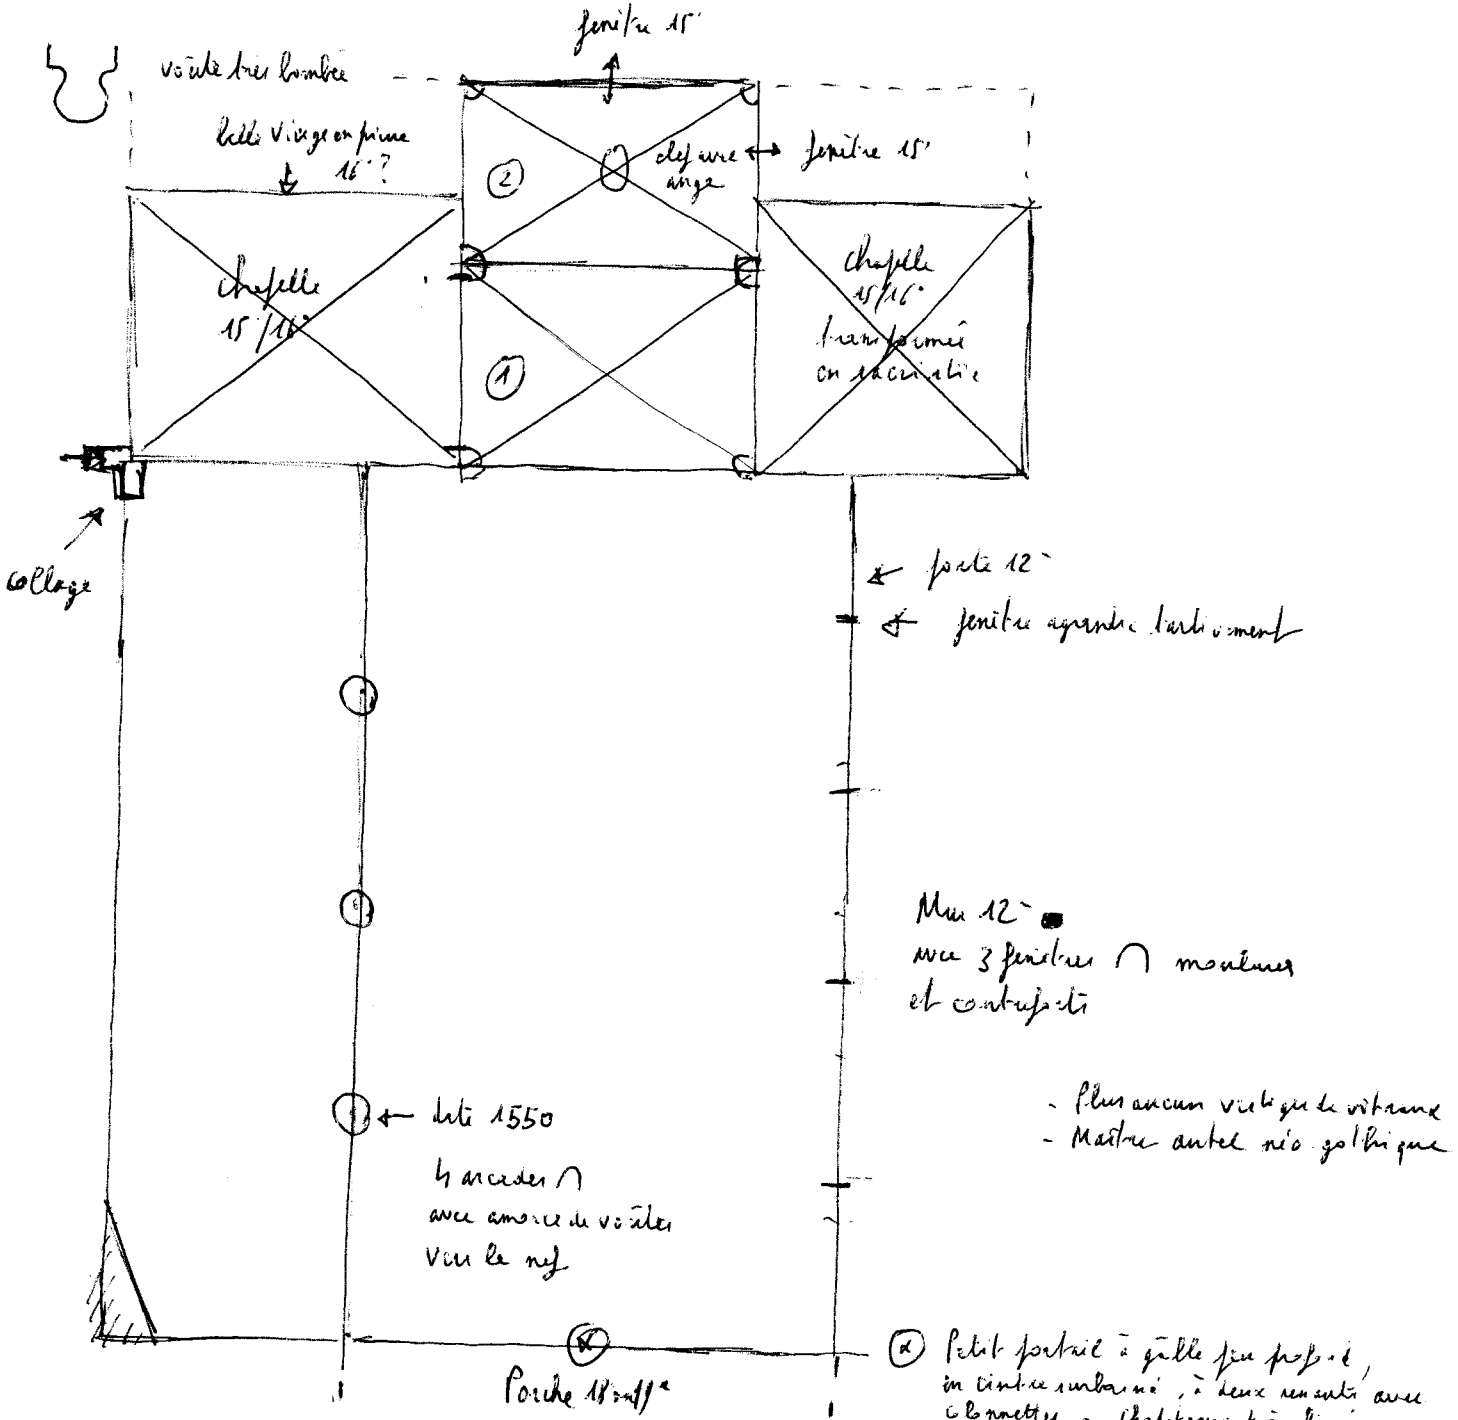 fenêtre 15°
voûte très bombée
belle Vierge en pierre
16° ?
2
clef avec
ange
fenêtre 15°
chapelle
15°/16°
chapelle
15/16°
transformée
en sacristie
1
collage
porte 12°
fenêtre agrandie tardivement
Mur 12°
avec 3 fenêtres ∩ moulures
et contreforts
- Plus aucun vestige de vitraux
- Maître autel néo gothique
date 1550
4 arcades ∩
avec amorce de voûtes
vers le nef
α
Porche 18°
α Petit portail à
en cintre surbaissé, à deux avec
colonnettes